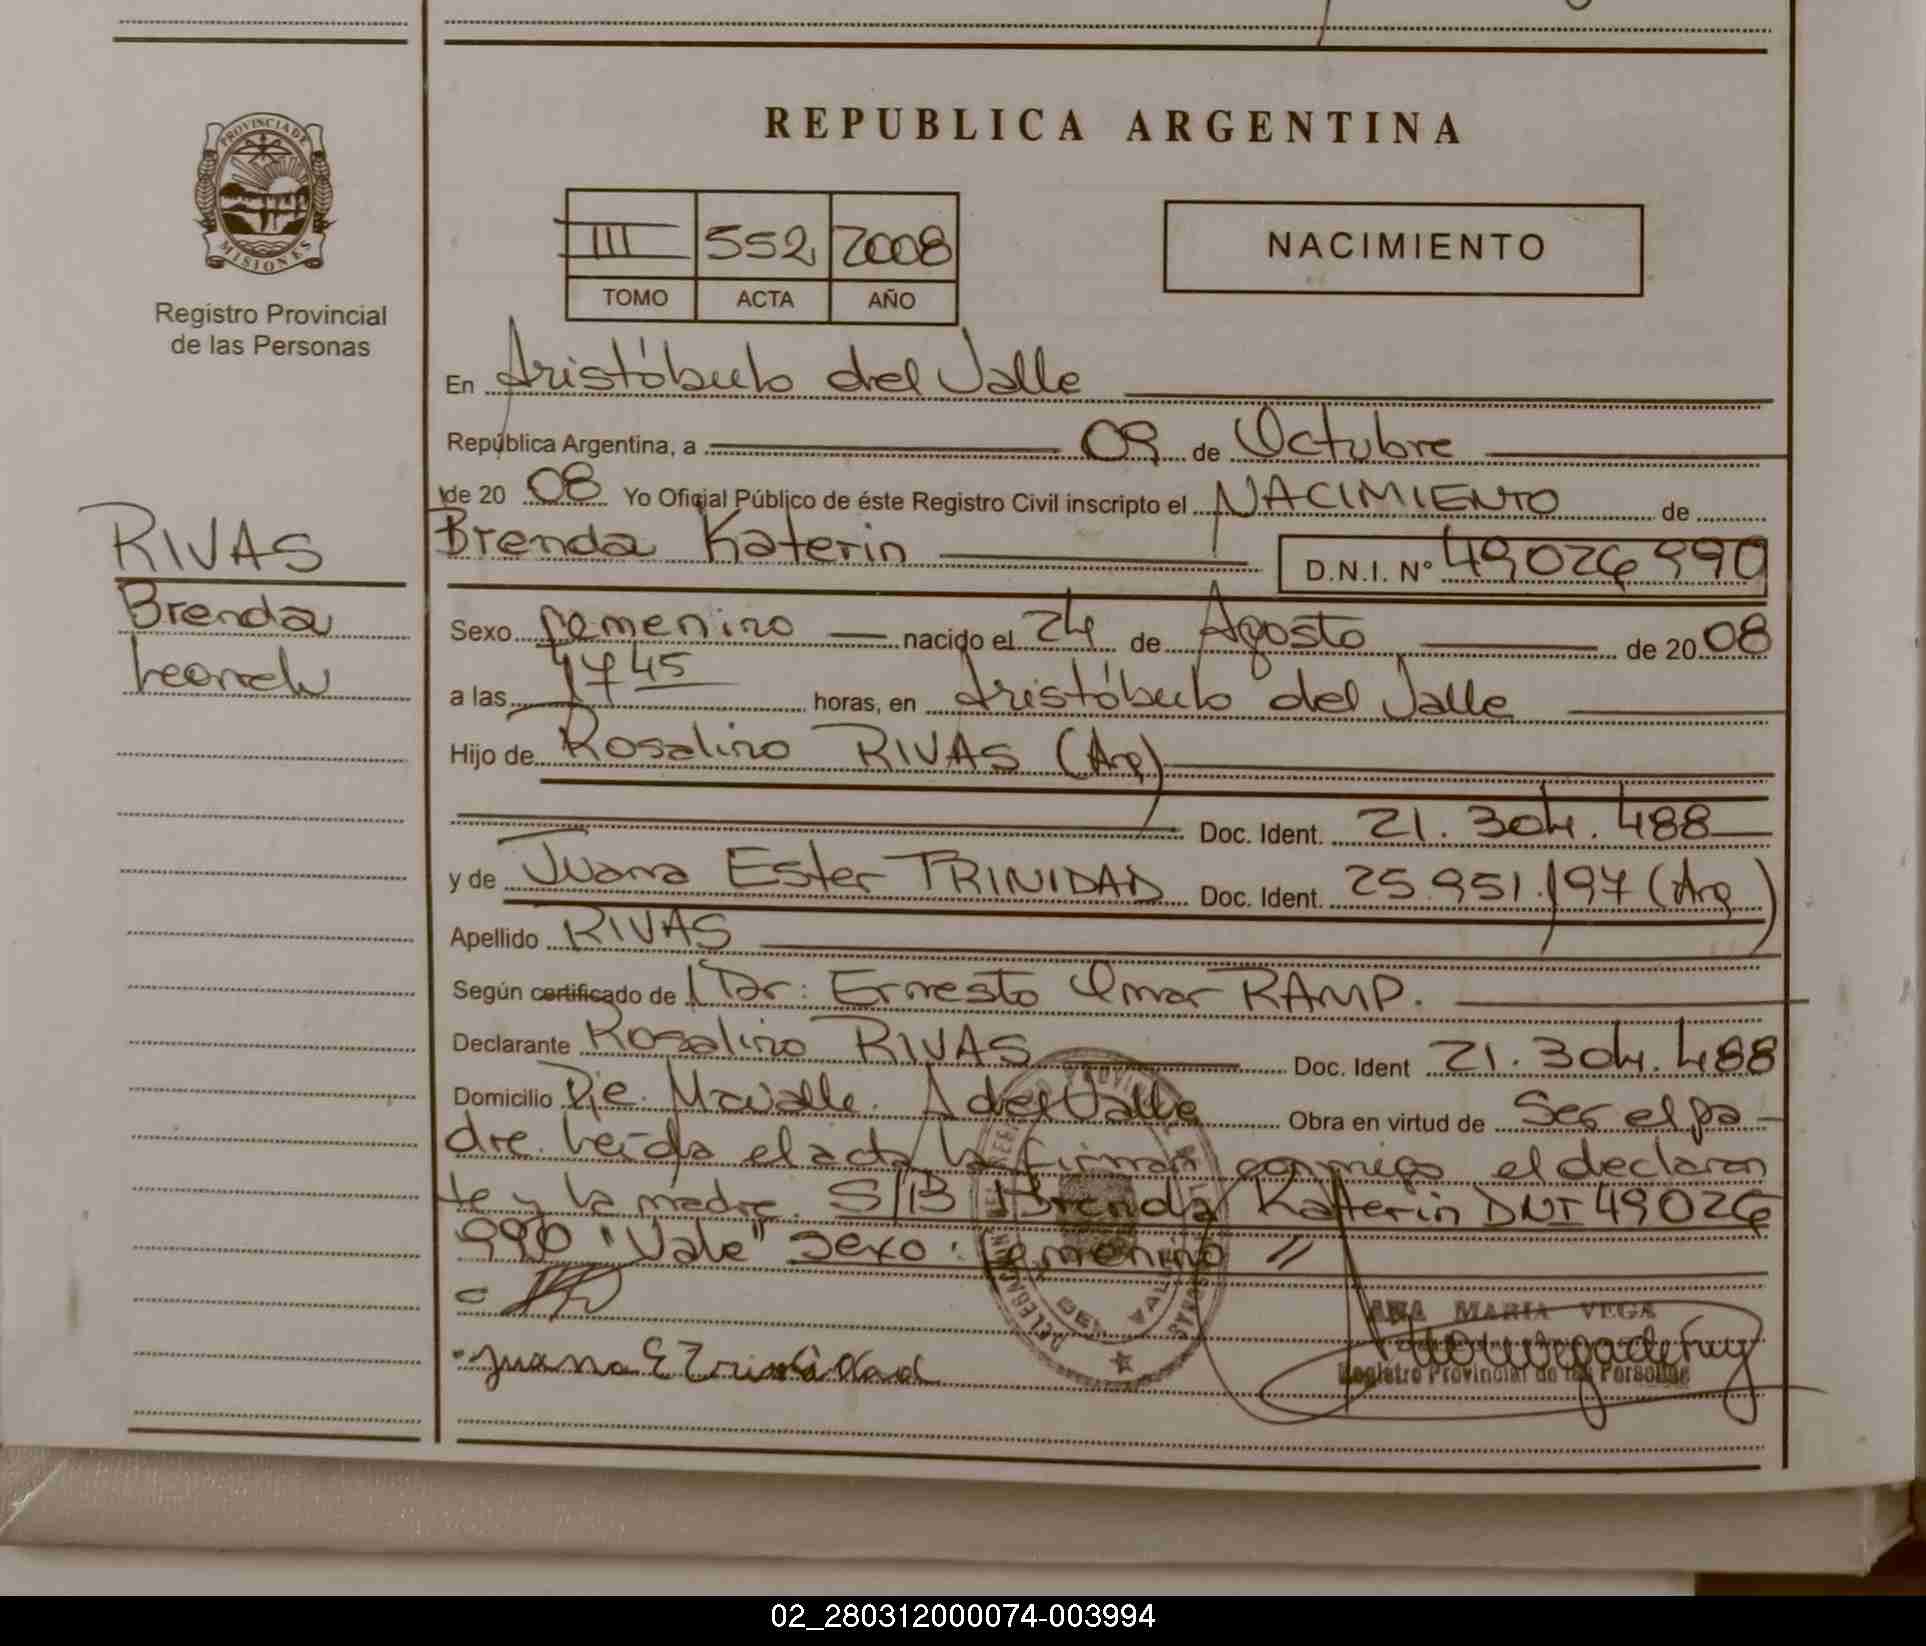 REPUBLICA ARGENTINA
PROVINCIA DE
MISIONES
Registro Provincial
de las Personas
III 552 2008
TOMO ACTA AÑO
NACIMIENTO
En Aristóbulo del Valle
República Argentina, a 09 de Octubre
de 20 08 Yo Oficial Público de éste Registro Civil inscripto el NACIMIENTO de
Brenda Katerin D.N.I. N° 49026990
RIVAS
Brenda
Sexo femenino nacido el 24 de Agosto de 20 08
a las 1745 horas, en Aristóbulo del Valle
Hijo de Rosalino RIVAS (Arg)
Doc. Ident. 21.304.488
y de Juana Ester TRINIDAD Doc. Ident. 25.951.197 (Arg)
Apellido RIVAS
Según certificado de Dr: Ernesto Omar RAMP.
Declarante Rosalino RIVAS Doc. Ident 21.304.488
Domicilio A del Valle Obra en virtud de Ser el pa-
dre. Leída el acta la firman conmigo el declaran
te y la madre. S/B Brenda Katerin DNI 49026
990 "Vale" sexo: femenino //
Juana E Trinidad
ANA MARIA VEGA
Registro Provincial de las Personas
DEL VALLE
02_280312000074-003994